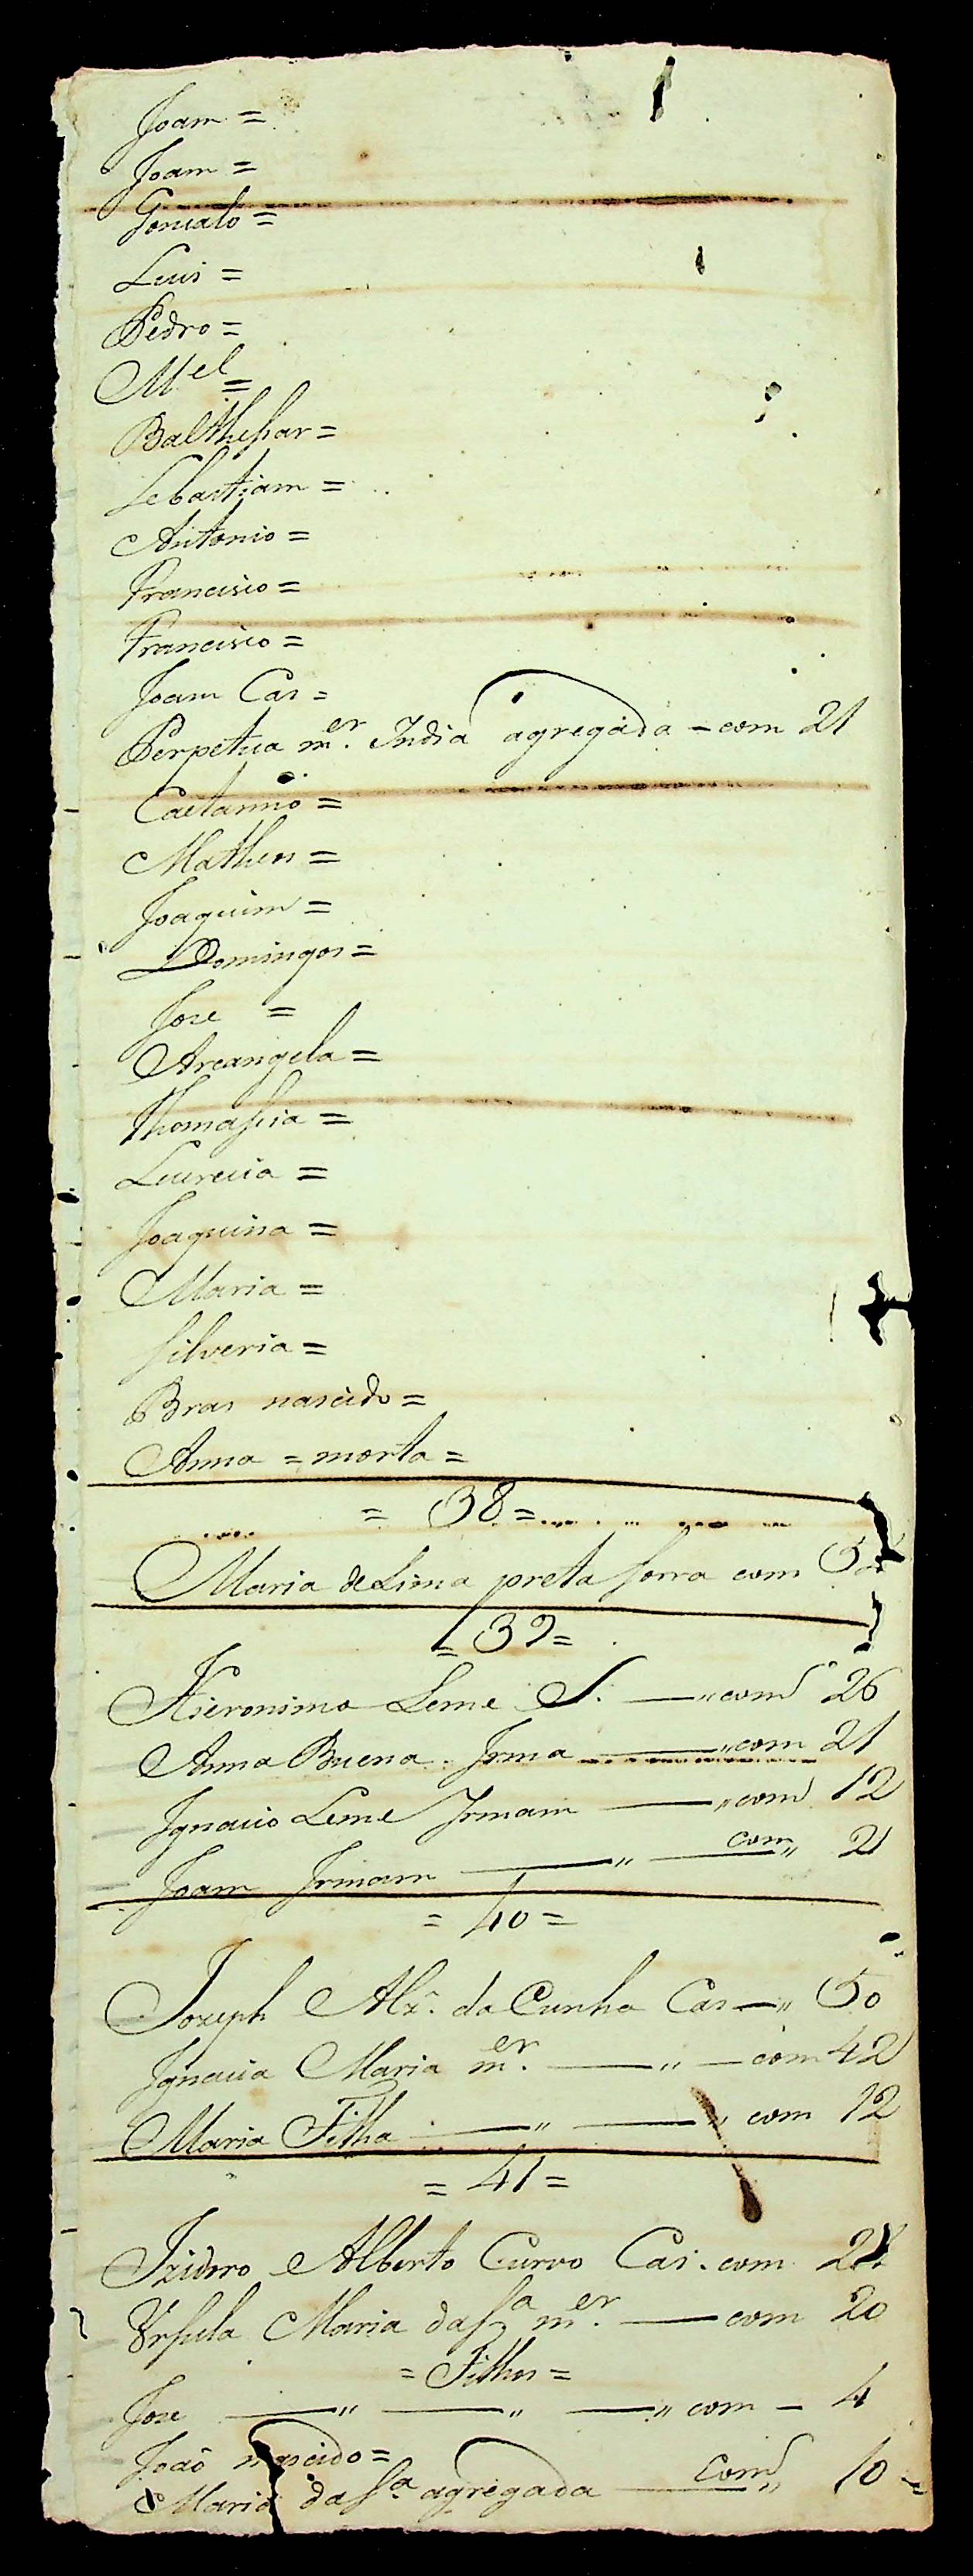 Joam =
Joam =
Goncalo =
Luis =
Pedro =
M.el =
Balthessar =
Sebastiam =
Antonio =
Francisco =
Francisco =
Joam Cas =
Perpetua m.er India agregada = com 21
Caetanno =
Matheus =
Joaquim =
Domingos =
Jose =
Arcangela =
Thomassia =
Lucrecia =
Joaquina =
Maria =
Silveria =
Bras nascido =
Anna = morta =
= 38 =
Maria de Lima preta forra com
= 39 =
Hieronimo Leme S. — com 26
Anna Buena Irma — com 21
Ignacio Leme Irmam — com 12
Joam Irmam — com
= 40 =
Joseph Alz. da Cunha Cas — 50
Ignacia Maria m.er — com 42
Maria Filha — com 12
= 41 =
Izidoro Alberto Curvo Cas. com
Ursula Maria da S.a m.er — com 20
= Filhos =
Jose — com — 4
João nascido =
Maria da S.a agregada — com 10 =